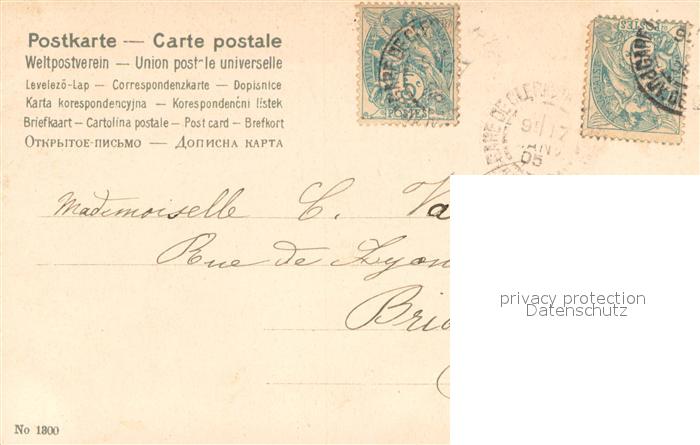 Postkarte — Carte postale
Weltpostverein — Union postale universelle
Levelező-Lap — Correspondenzkarte — Dopisnice
Karta korespondencyjna — Korespondenční lístek
Briefkaart — Cartolina postale — Post card — Brefkort
Открытое-письмо — Дописна карта
POSTES
POSTES
05
Mademoiselle C. Va
Rue de Lyon
Brio
privacy protection
Datenschutz
No 1300